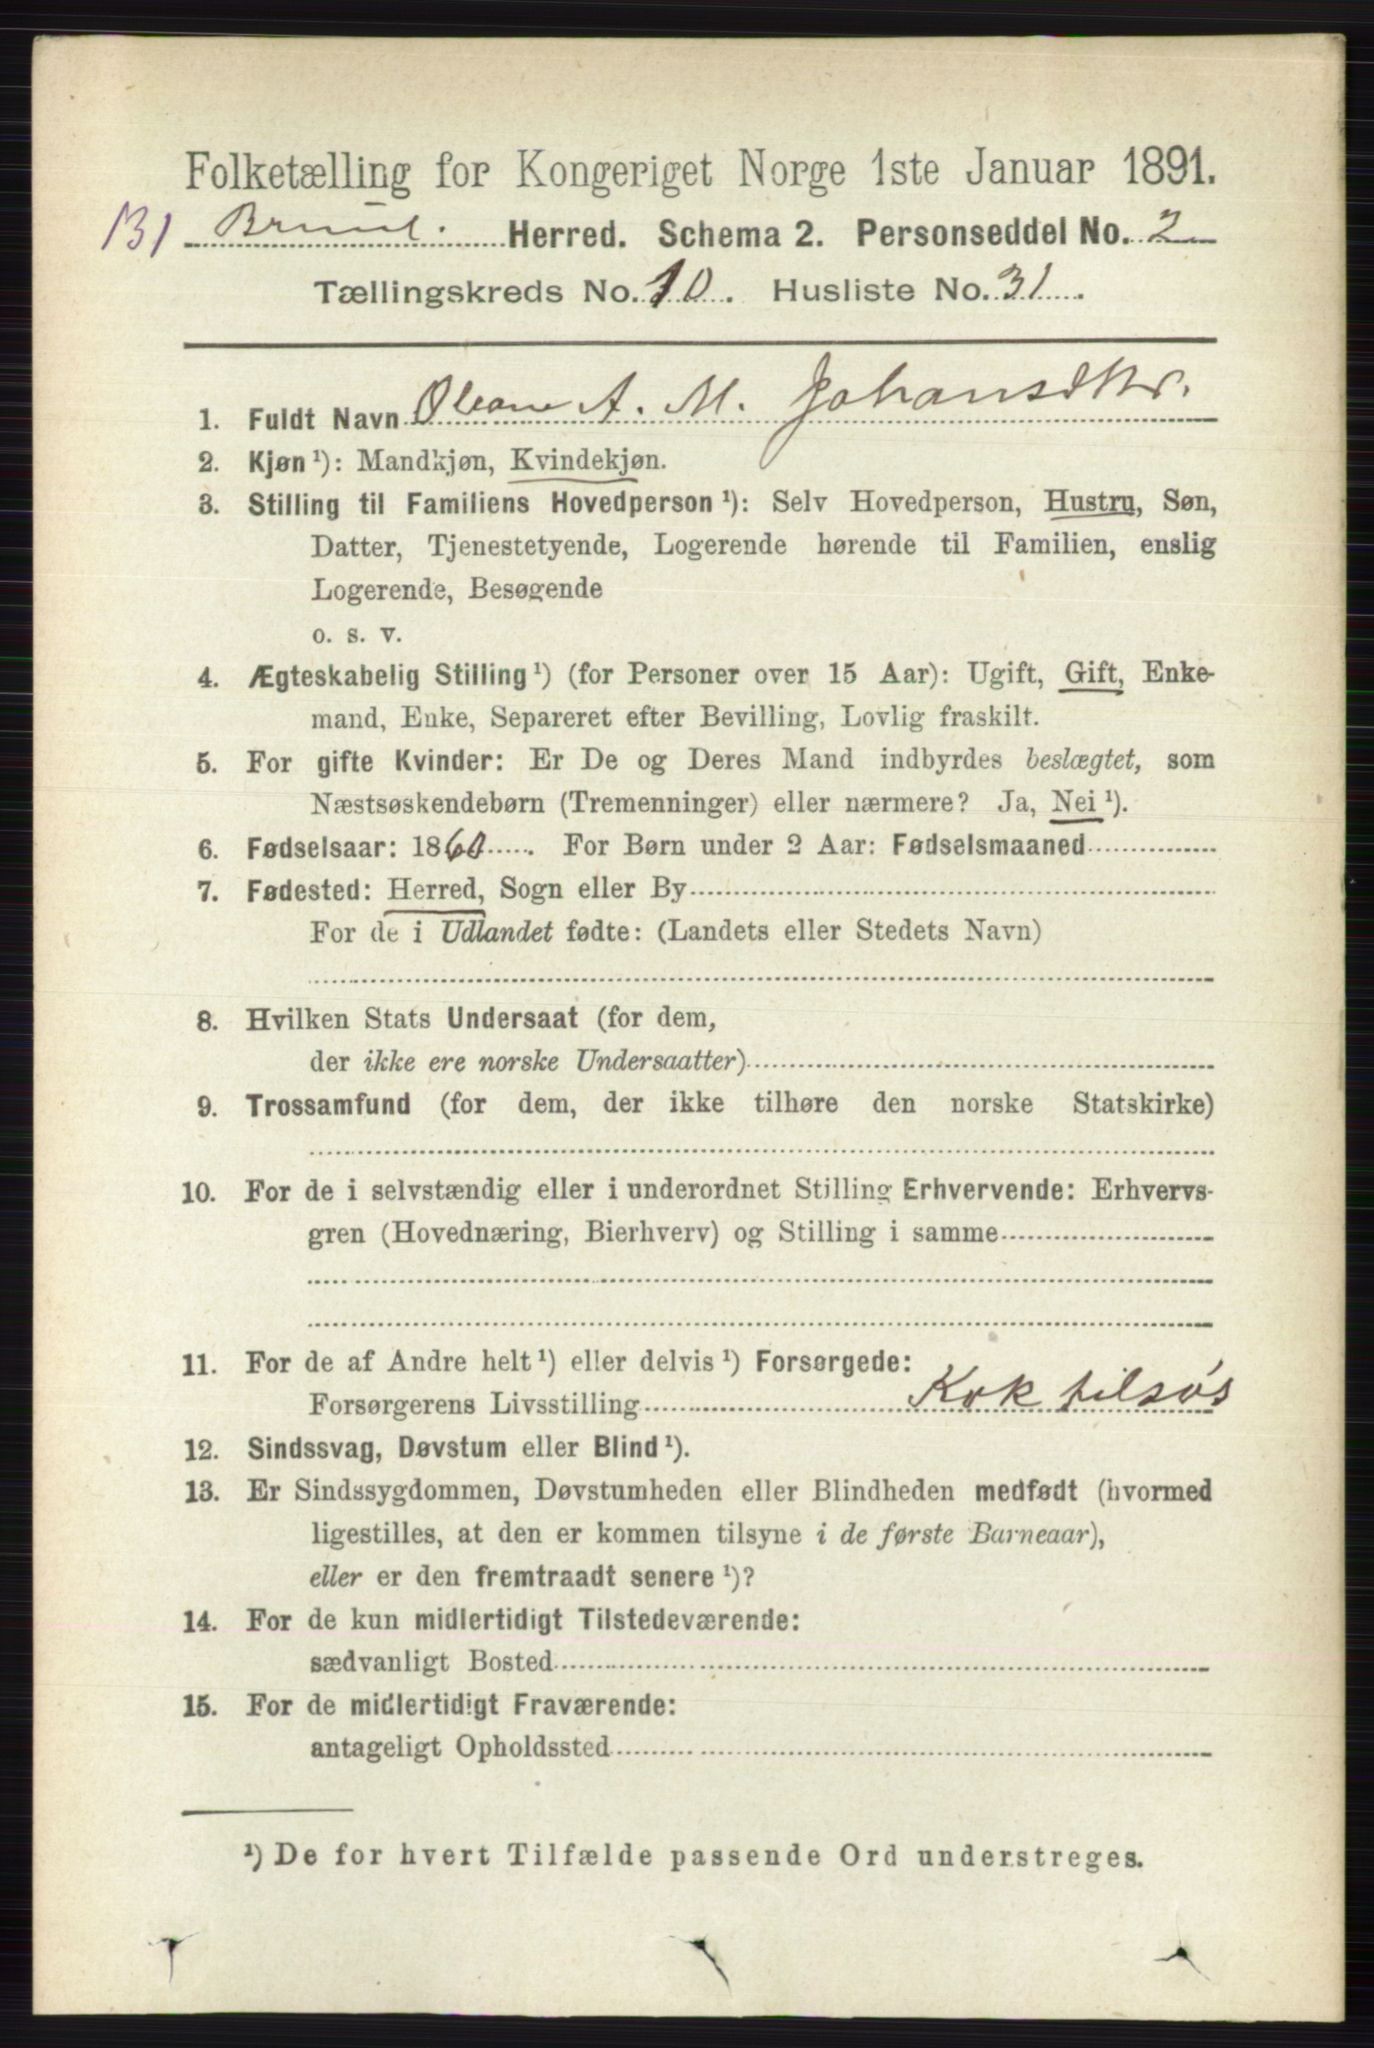 Folketælling for Kongeriget Norge 1ste Januar 1891.
131 Brunl. Herred. Schema 2. Personseddel No. 2
Tællingskreds No. 10. Husliste No. 31.
1. Fuldt Navn Oleane A. M. Johansdtr.
2. Kjøn ¹): Mandkjøn, Kvindekjøn.
3. Stilling til Familiens Hovedperson ¹): Selv Hovedperson, Hustru, Søn,
Datter, Tjenestetyende, Logerende hørende til Familien, enslig
Logerende, Besøgende
o. s. v.
4. Ægteskabelig Stilling ¹) (for Personer over 15 Aar): Ugift, Gift, Enke-
mand, Enke, Separeret efter Bevilling, Lovlig fraskilt.
5. For gifte Kvinder: Er De og Deres Mand indbyrdes beslægtet, som
Næstsøskendebørn (Tremenninger) eller nærmere? Ja, Nei ¹).
6. Fødselsaar: 1860. For Børn under 2 Aar: Fødselsmaaned
7. Fødested: Herred, Sogn eller By
For de i Udlandet fødte: (Landets eller Stedets Navn)
8. Hvilken Stats Undersaat (for dem,
der ikke ere norske Undersaatter)
9. Trossamfund (for dem, der ikke tilhøre den norske Statskirke)
10. For de i selvstændig eller i underordnet Stilling Erhvervende: Erhvervs-
gren (Hovednæring, Bierhverv) og Stilling i samme
11. For de af Andre helt ¹) eller delvis ¹) Forsørgede:
Forsørgerens Livsstilling Kok tilsøs
12. Sindssvag, Døvstum eller Blind ¹).
13. Er Sindssygdommen, Døvstumheden eller Blindheden medfødt (hvormed
ligestilles, at den er kommen tilsyne i de første Barneaar),
eller er den fremtraadt senere ¹)?
14. For de kun midlertidigt Tilstedeværende:
sædvanligt Bosted
15. For de midlertidigt Fraværende:
antageligt Opholdssted
¹) De for hvert Tilfælde passende Ord understreges.